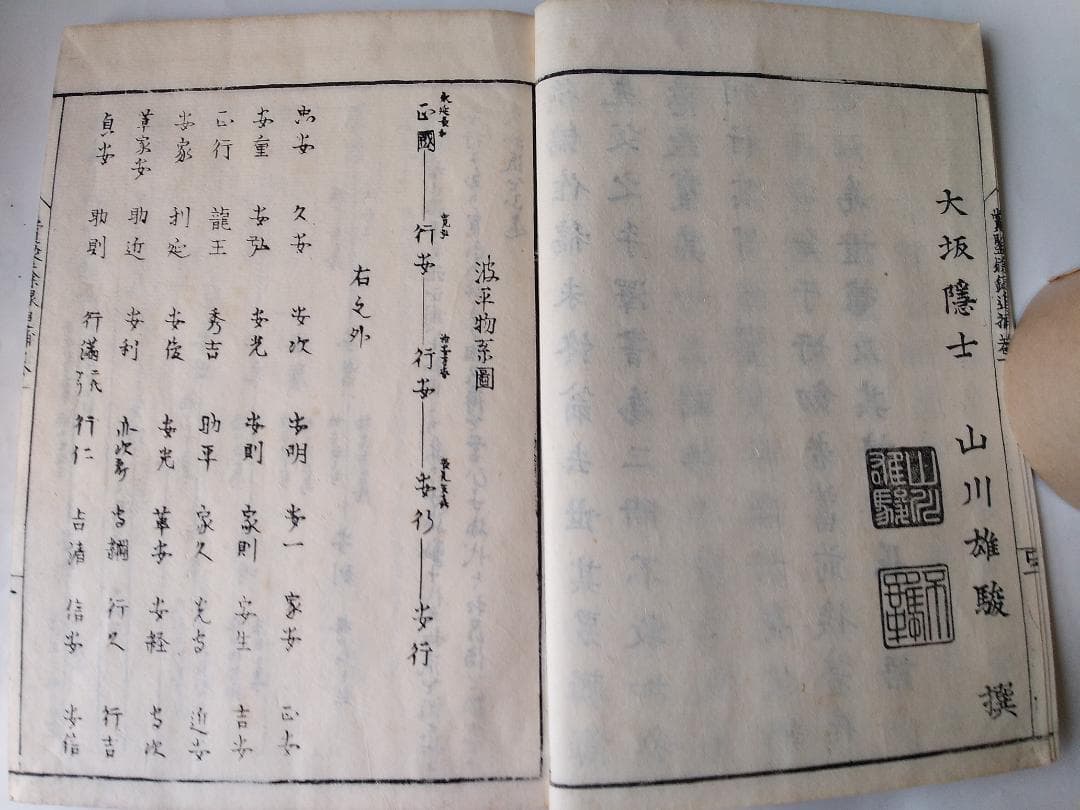 大坂隱士 山川雄駿 撰
山川雄駿
波平物系圖
正國 行安 行安 安行 安行
寛弘
右之外
忠安 久安 安次 安明 安一 家安 正安
安重 安弘 安光 安則 家則 安生 吉安
正行 龍王 秀吉 助平 家久 光安 近安
安家 利延 安俊 安光 革安 安経 安次
革家安 助近 安利 安綱 行久 行吉
貞安 助則 行滿 行仁 吉清 信安 安信